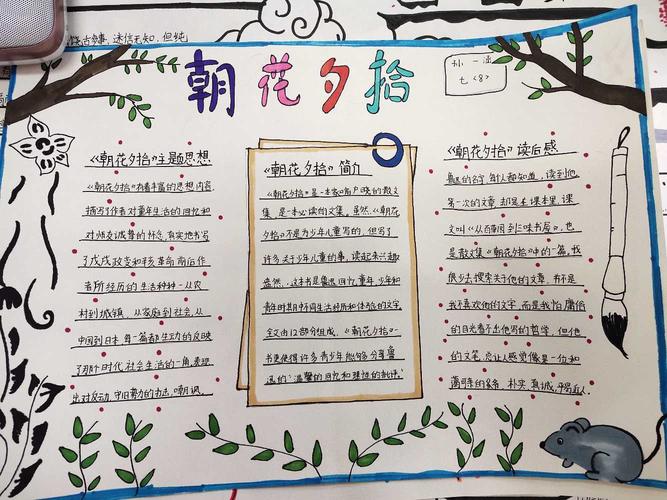 烧古敌事, 迷信无知, 但纯
朝花夕拾
孙一涵
七〈8〉
《朝花夕拾》主题思想
《朝花夕拾》有着丰富的思想内容.
描写了作者对童年生活的回忆和
对师友诚挚的怀念,真实地书写
了戊戌政变和辛亥革命前后作
者所经历的生活种种一从农
村到城镇,从家庭到社会,从
中国到日本,每一篇都生动的反映
了那个时代,社会生活的一角,表现
出对反动、守旧势力的抨击,嘲讽。
《朝花夕拾》简介
《朝花夕拾》是一本家喻户晓的散文
集,是一本必读的文集。虽然,《朝花
夕拾》不是为少年儿童写的,但写了
许多关于少年儿童的事,读起来兴趣
盎然.这本书是鲁迅回忆童年、少年和
青年时期中不同生活经历和体验的文字.
全文由12部分组成,《朝花夕拾》一
书更使得许多青少年能够分享鲁
迅的:温馨的回忆和理性的批评。"
《朝花夕拾》读后感
鲁迅的名字,每个人都知道,读到他
第一次的文章,却是在课本里,课
文叫《从百草园到三味书屋》,也
是散文集《朝花夕拾》中的一篇.我
很少去搜索关于他的文章,并不是
我不喜欢他的文字,而是我怕庸俗
的目光看不出他写的哲学,但他
的文笔,总让人感觉像是一位和
蔼可亲的爷爷,朴实,真诚,平易近人.